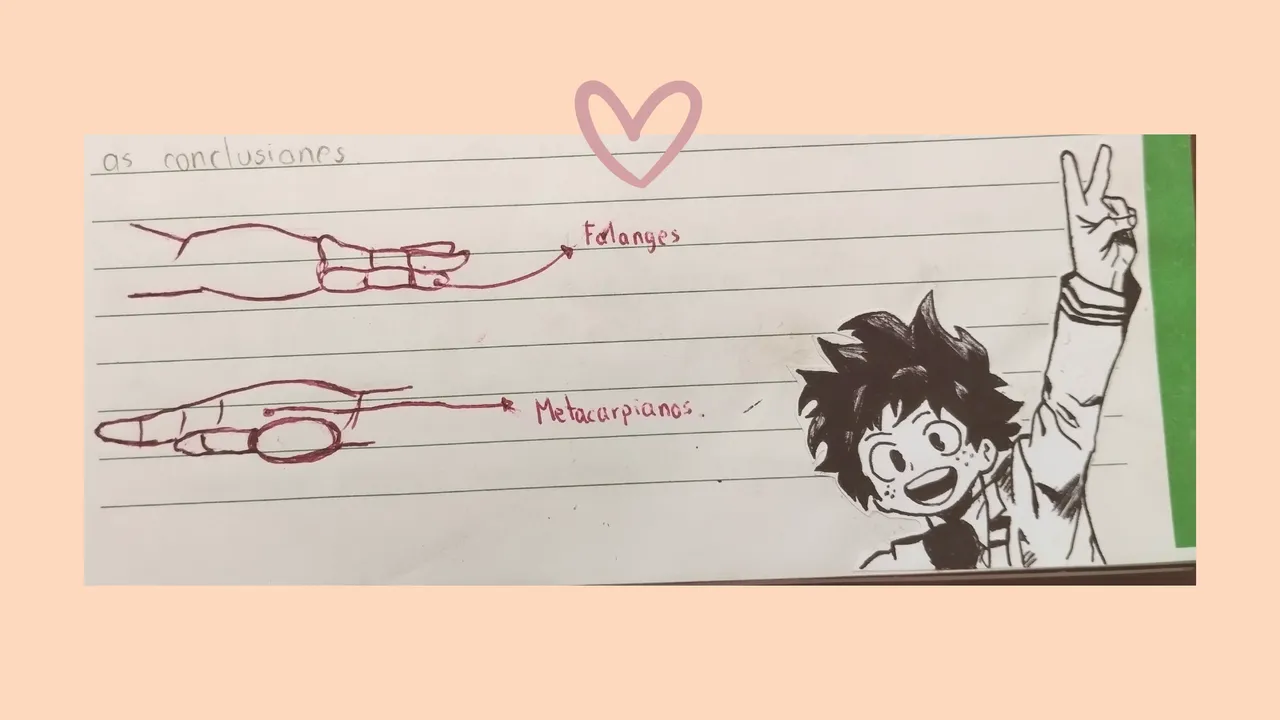 as conclusiones
Falanges
Metacarpianos.